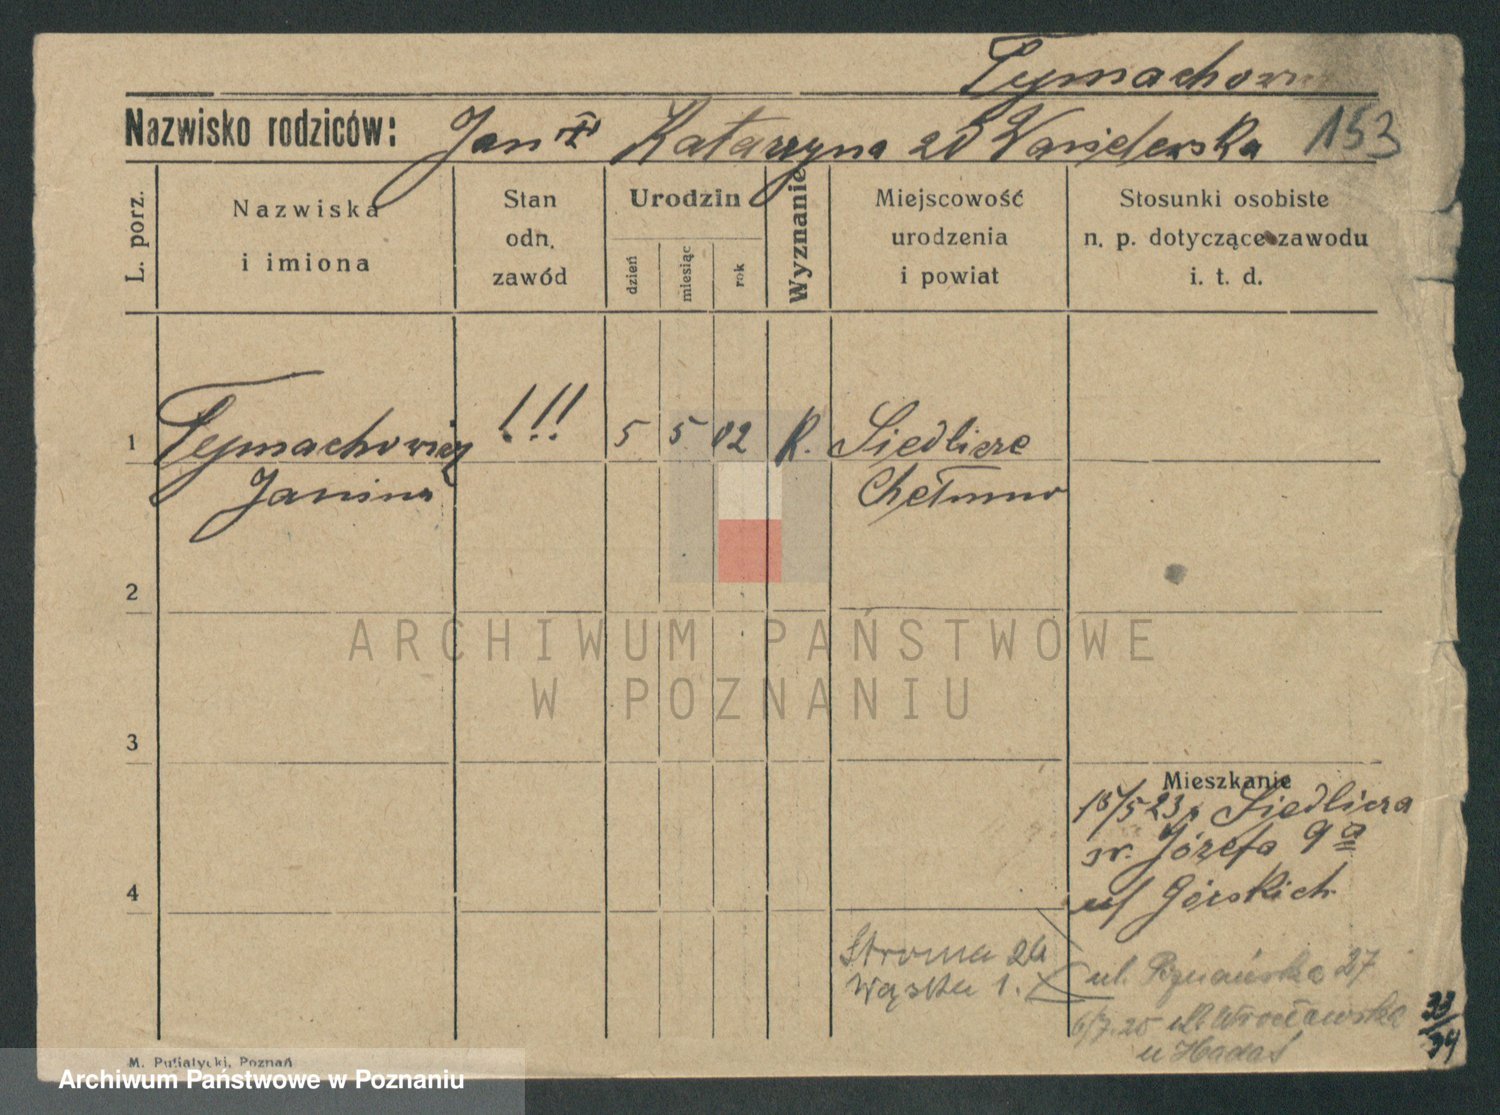 Tymachowicz
Nazwisko rodziców: Jan Katarzyna zd Wasielewska 153
L. porz.
Nazwiska
i imiona
Stan
odn.
zawód
Urodzin
dzień
miesiąc
rok
Wyznanie
Miejscowość
urodzenia
i powiat
Stosunki osobiste
n. p. dotyczące zawodu
i. t. d.
1 Tymachowicz !!! 5 5. 02 R. Siedlisze
Janina Chełmno
2
ARCHIWUM PAŃSTWOWE
W POZNANIU
3
Mieszkanie
15/5 23 Siedlisza
św. Józefa 9a
4
u/ Górskich
Stroma 26
Wąska 1.
ul. Poznańska 27
6/7.25 ul. Wrocławska
u Hadaś
33/34
M. Putiatycki, Poznań
Archiwum Państwowe w Poznaniu